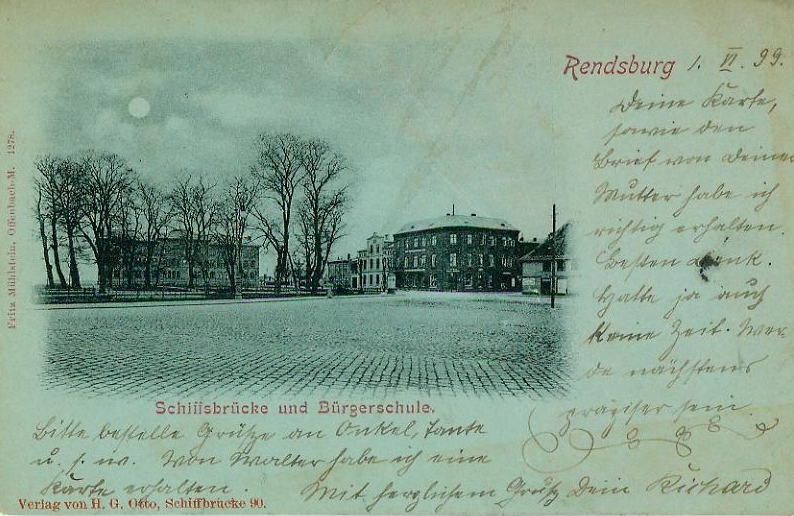 Rendsburg 1. VI. 99.
Deine Karte,
sowie den
Brief von Deiner
Mutter habe ich
richtig erhalten.
Besten Dank.
Hatte ja auch
keine Zeit. Wer-
de nächstens
präziser sein.
Schiffsbrücke und Bürgerschule.
Bitte bestelle Grüße an Onkel, Tante
u. s. w. Von Walter habe ich eine
Karte erhalten.
Mit herzlichem Gruß Dein Richard
Verlag von H. G. Otto, Schiffbrücke 90.
Fritz Mühlstein, Offenbach-M. 1278.